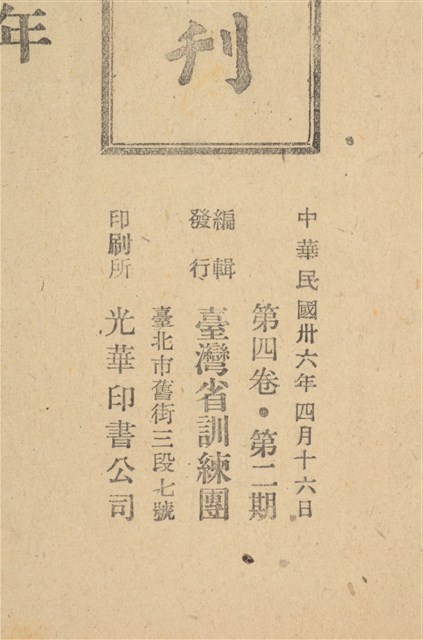 刊
年
中華民國卅六年四月十六日
第四卷・第二期
編輯
發行
臺灣省訓練團
臺北市舊街三段七號
印刷所
光華印書公司